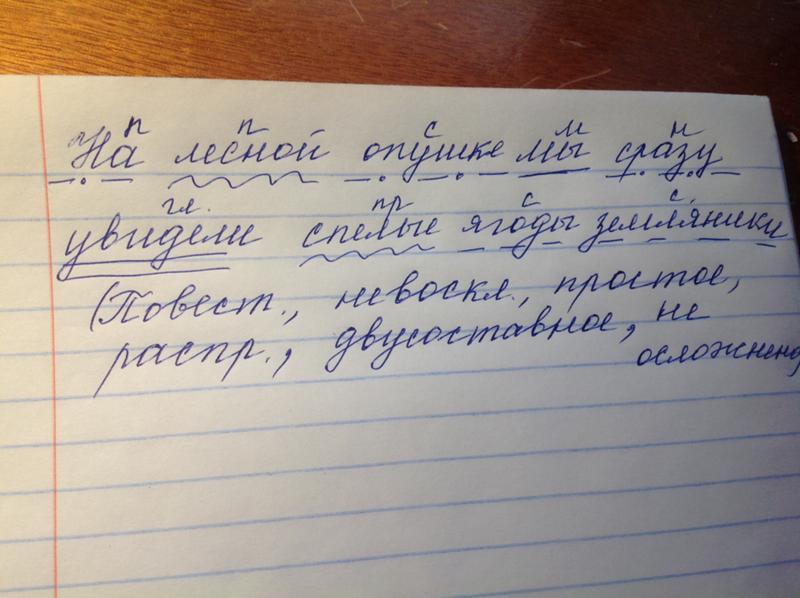 п п с м н
На лесной опушке мы сразу
гл. пр с с.
увидели спелые ягоды земляники
(Повест., невоскл., простое,
распр., двусоставное, не
осложнено